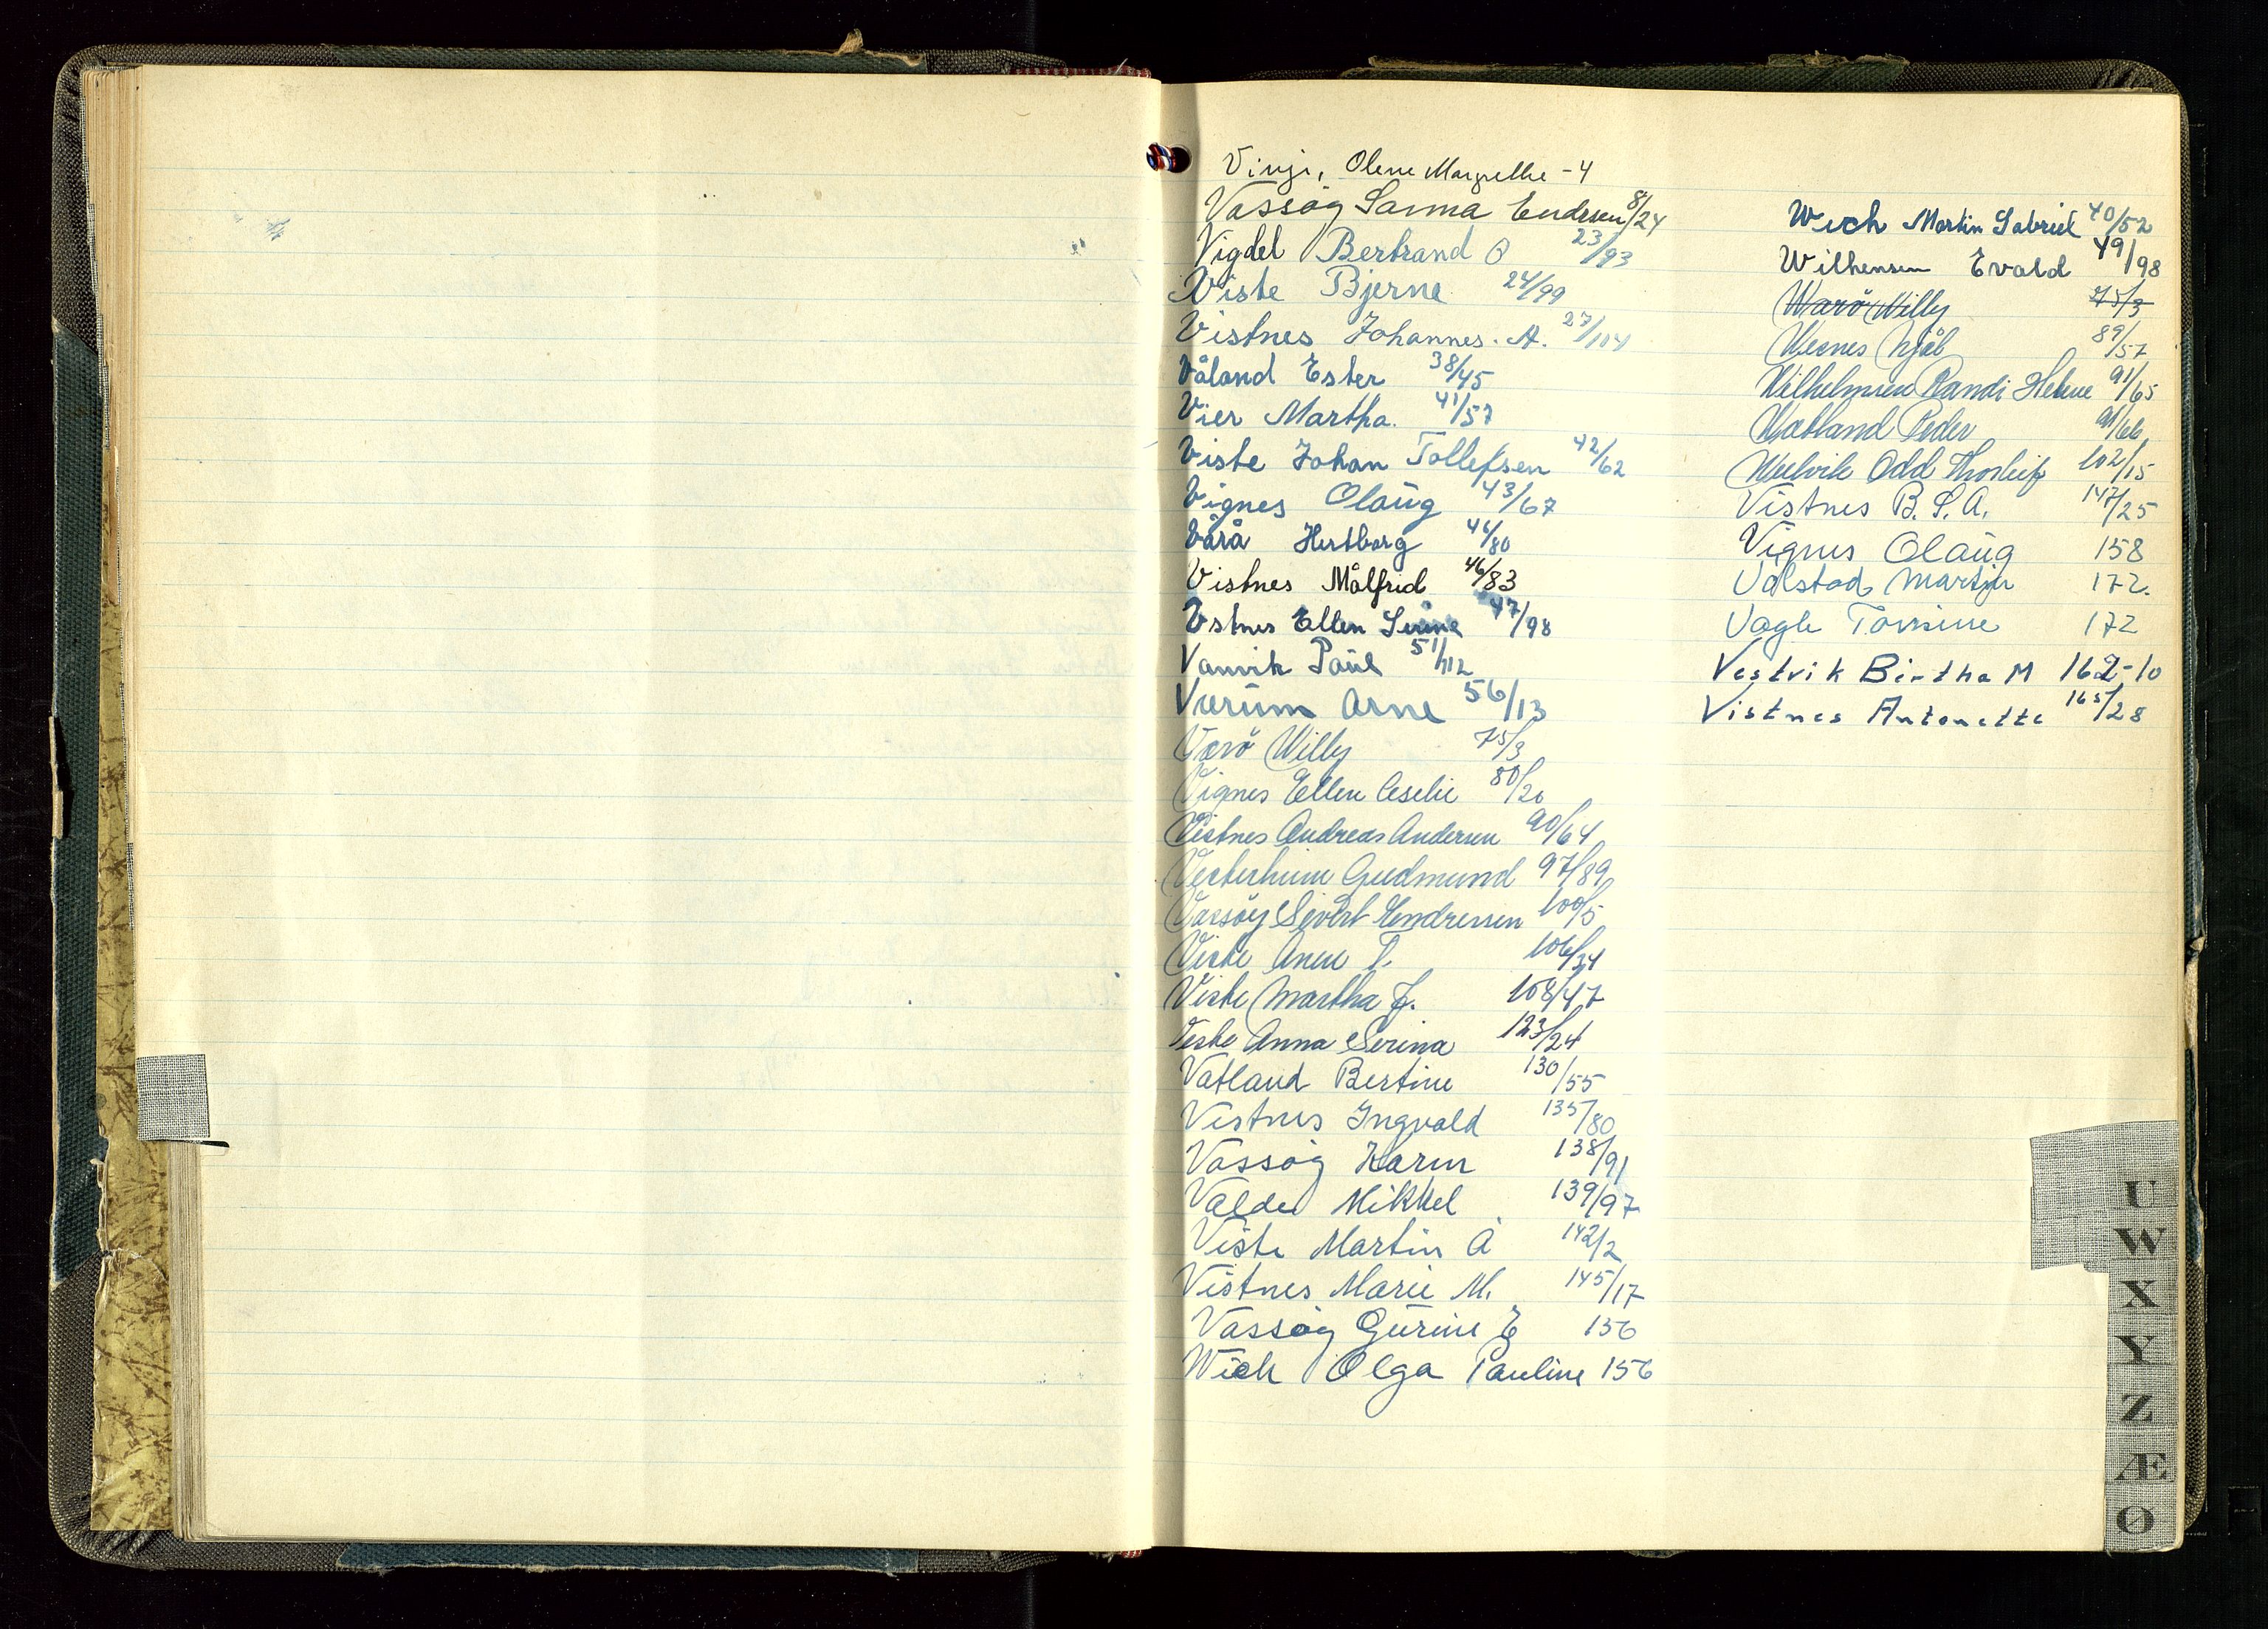 Vinje, Olene Margrethe - 4
Vassøy Sanna Endresen 8/24
Vigdel Bertrand O 23/93
Viste Bjerne 24/99
Vistnes Johannes. A. 27/104
Våland Ester 38/45
Vier Martha. 41/57
Viste Johan Tollefsen 42/62
Vignes Olaug 43/67
Vårå Hertborg 46/80
Vistnes Målfrid 46/83
Vstnes Ellen Serine 47/98
Vanvik Paul 51/112
Værum Arne 56/13
Varö Willy 75/3
Vignes Ellen Ceselie 80/20
Vistnes Andreas Andersen 90/64
Vesterheim Gudmund 97/89
Vassøy Sivert Endresen 100/5
Viste Anne T. 106/34
Viste Martha J. 108/47
Viste Anna Serina 123/24
Vatland Bertine 130/55
Vistnes Ingvald 135/80
Vassøy Karen 138/91
Valde Mikkel 139/97
Viste Martin A 142/2
Vistnes Marie M. 145/17
Vassøy Gurine E 156
Wich Olga Pauline 156
Wich Martin Gabriel 40/52
Wilhemsen Evald 49/98
Warö Willy 75/3
Wesnes Njål 89/57
Wilhelmsen Randi Helene 91/65
Watland Peder 91/66
Wulvik Odd Thorleif 102/15
Vistnes B. S. A. 147/25
Vignes Olaug 158
Valstad Martin 172.
Vagle Tomine 172
Vestvik Birtha M 162-10
Vistnes Antonette 165/28
U
W
X
Y
Z
Æ
Ø